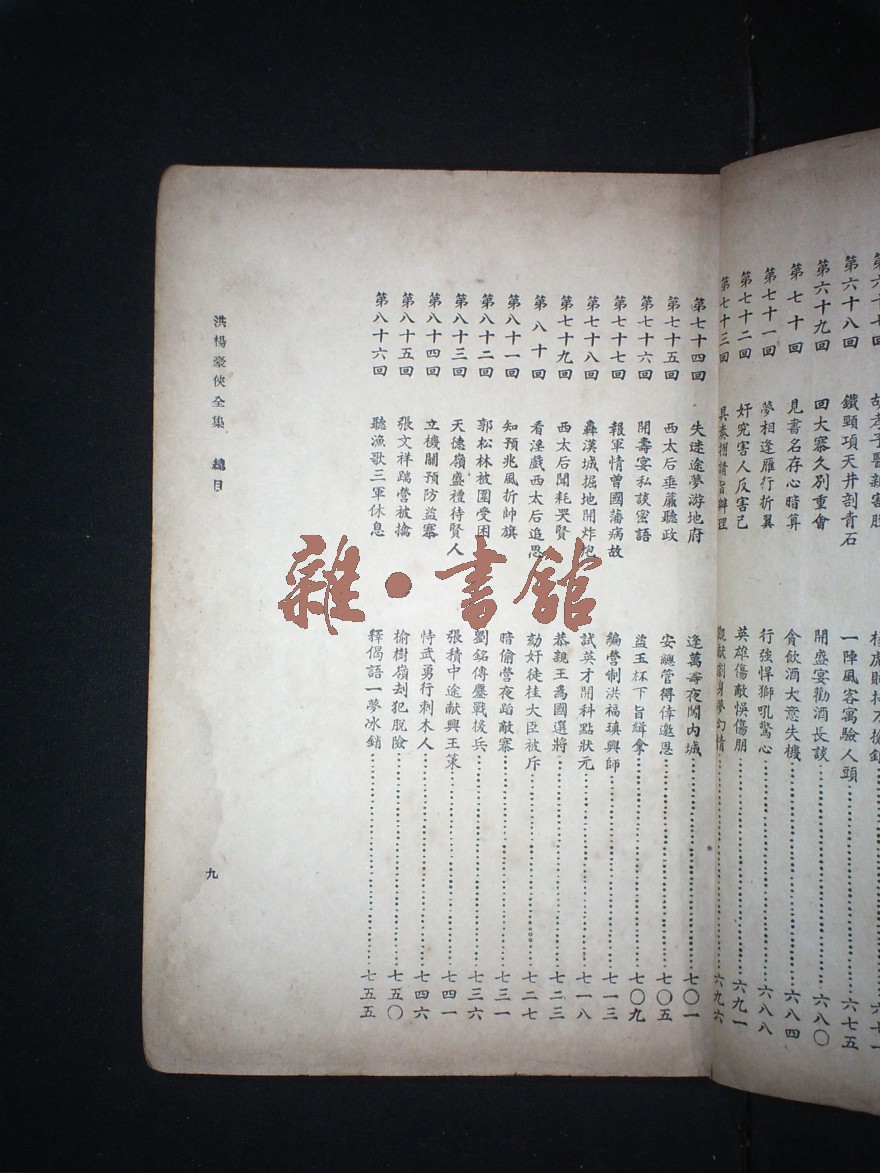 第六十八回 鐵頸項天井剖青石 一陣風客寓驗人頭 六七五
第六十九回 回大寨久別重會 開盛宴勸酒長談 六八〇
第七十回 見書名存心暗算 貪飲酒大意失機 六八四
第七十一回 夢相逢雁行折翼 行強悍獅吼驚心 六八八
第七十二回 奸宄害人反害己 英雄傷敵悞傷朋 六九一
第七十三回 具奏摺請旨辦理 六九六
第七十四回 失迷途夢游地府 逢萬壽夜鬧內城 七〇一
第七十五回 西太后垂簾聽政 安總管得倖邀恩 七〇五
第七十六回 開壽宴私談密語 盜玉杯下旨緝拿 七〇九
第七十七回 報軍情曾國藩病故 編營制洪福瑱興師 七一三
第七十八回 轟漢城掘地開炸炮 試英才開科點狀元 七一八
第七十九回 西太后聞耗哭賢 恭親王為國選將 七二三
第八十回 看淫戲西太后追思 劾奸徒桂大臣被斥 七二七
第八十一回 知預兆風折帥旗 暗偷營夜蹈敵寨 七三一
第八十二回 郭松林被圍受困 劉銘傳鏖戰援兵 七三六
第八十三回 天德嶺盛禮待賢人 張積中途献興王策 七四一
第八十四回 立機關預防盜寨 恃武勇行刺木人 七四六
第八十五回 張文祥踹營被擒 榆樹嶺刦犯脫險 七五〇
第八十六回 聽漁歌三軍休息 釋偈語一夢冰銷 七五五
洪楊豪俠全集 總目
九
雜·書館